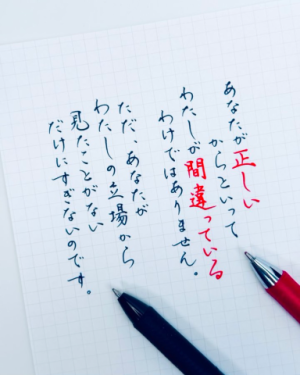 あなたが正しい
からといって
わたしが間違っている
わけではありません。
ただ、あなたが
わたしの立場から
見たことがない
だけにすぎないのです。